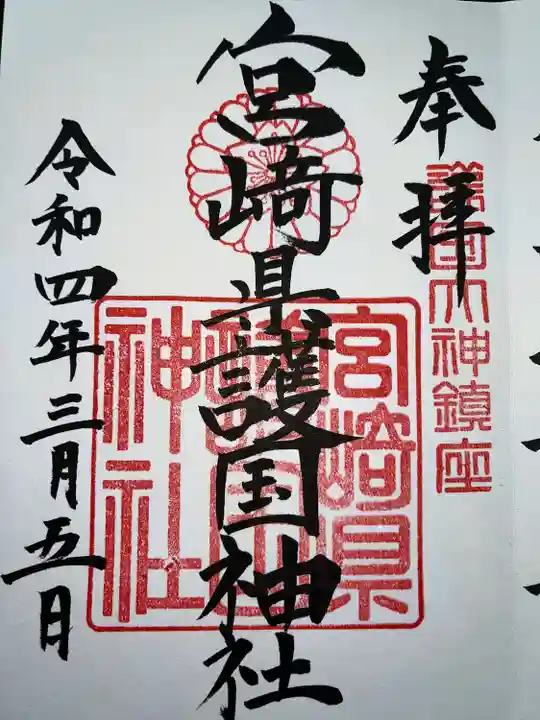 奉拝
護国大神鎮座
宮崎県護国神社
宮崎県
護国
神社
令和四年三月五日